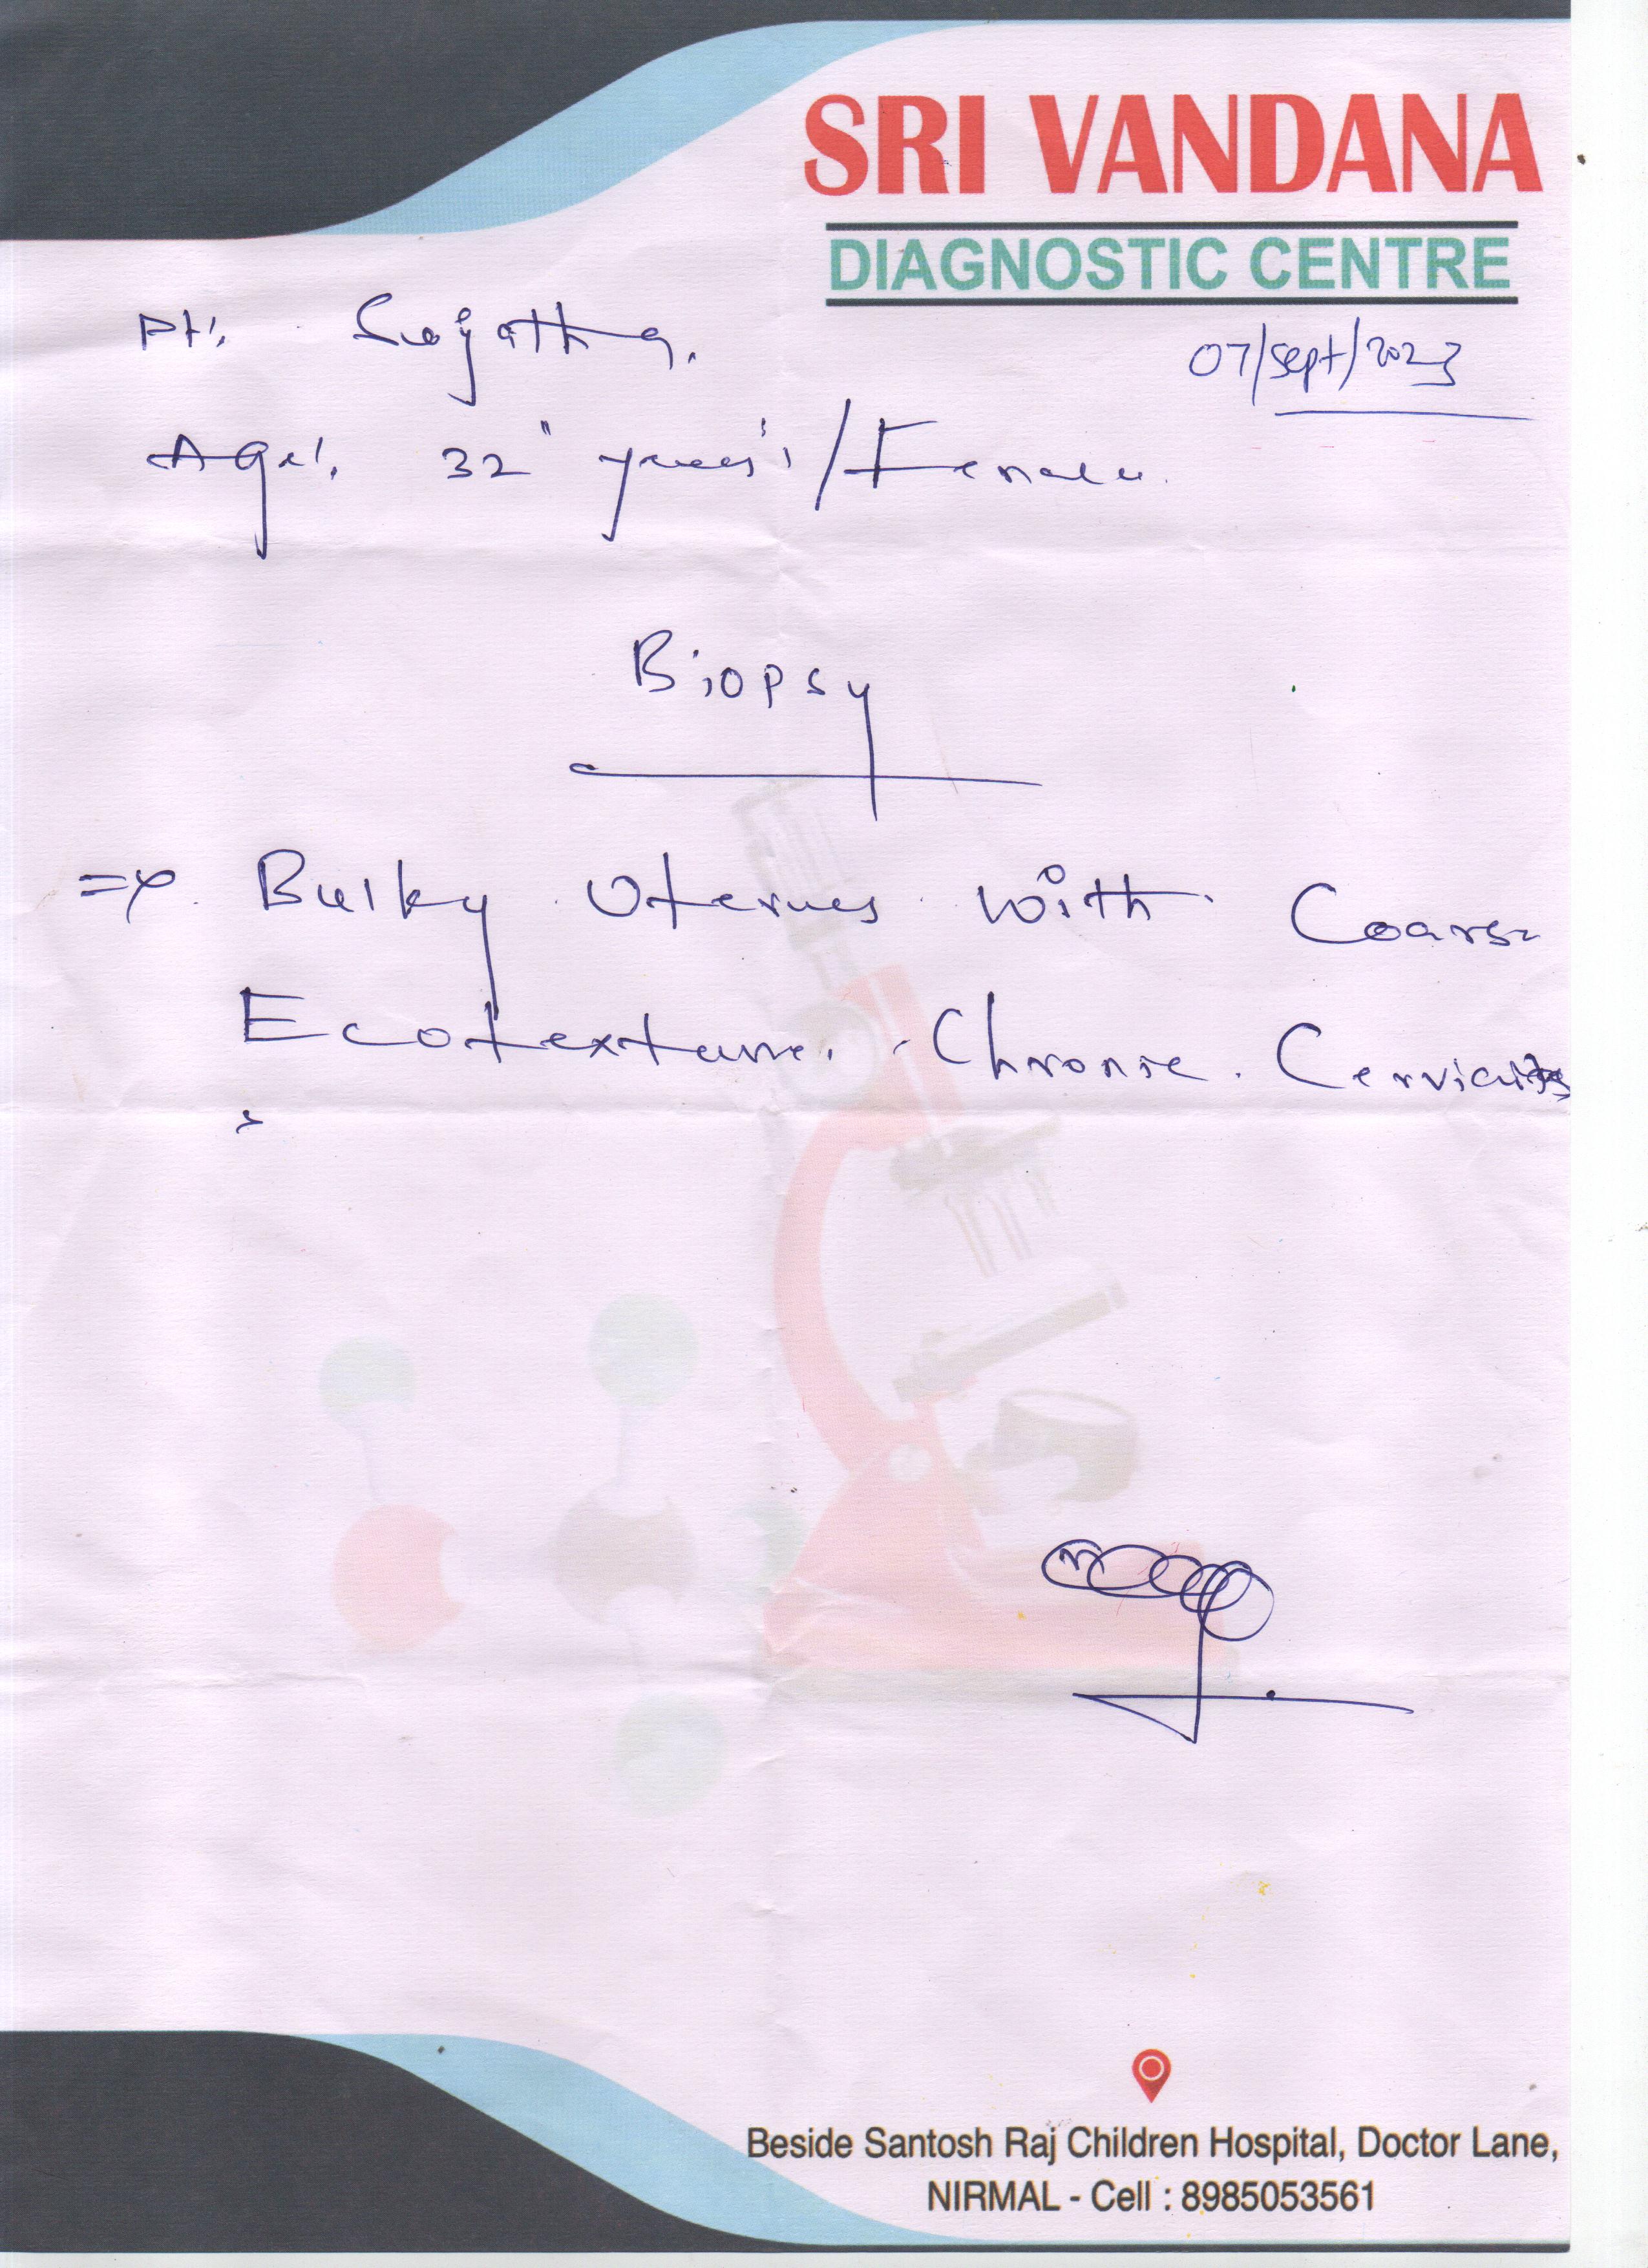 SRI VANDANA
DIAGNOSTIC CENTRE
Pt:. Sujatha.
07/Sept/2023
Age:. 32 years/Female.
Biopsy
=> Bulky Uterus with Coarse
Ecotexture. Chronic. Cervicitis
Beside Santosh Raj Children Hospital, Doctor Lane,
NIRMAL - Cell : 8985053561